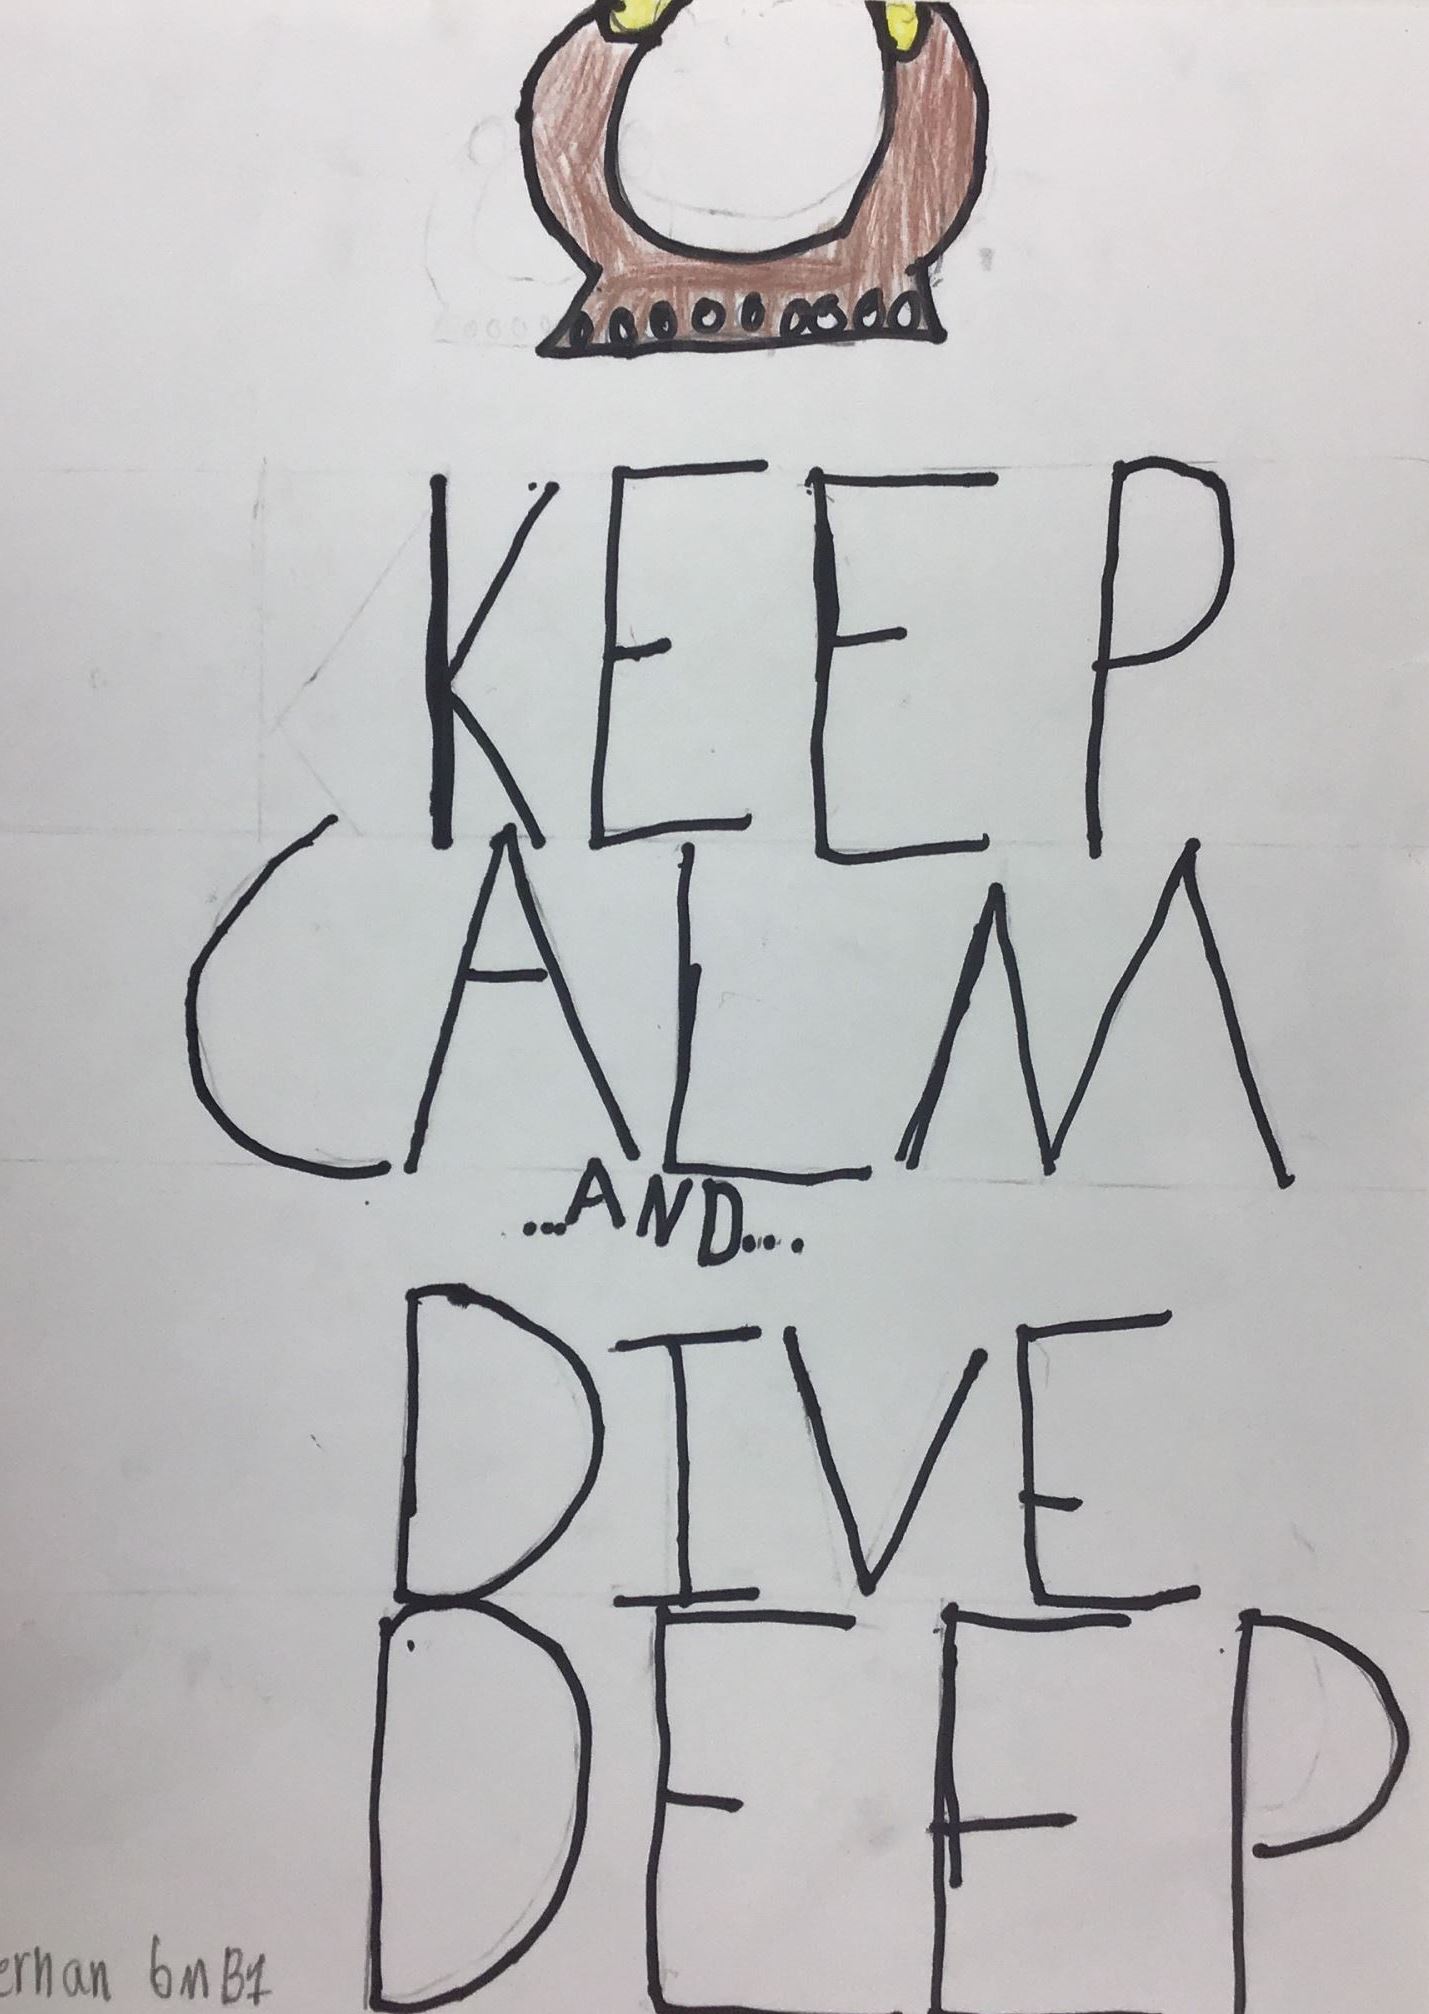 KEEP
CALM
...AND....
DIVE
DEEP
6mB1